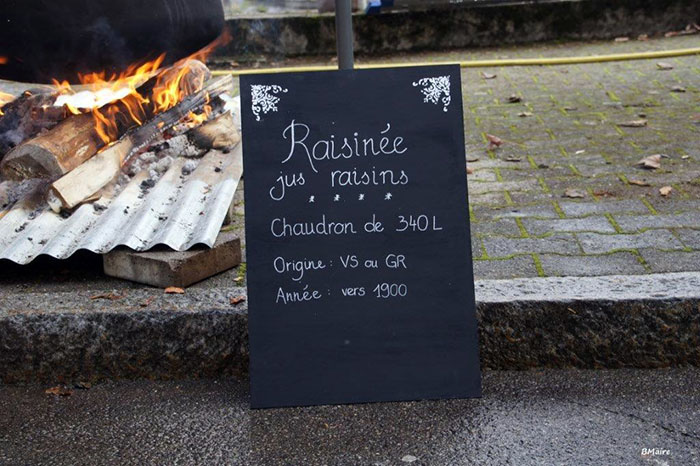 Raisinée
jus raisins
Chaudron de 340L
Origine : VS ou GR
Année : vers 1900
BMaire